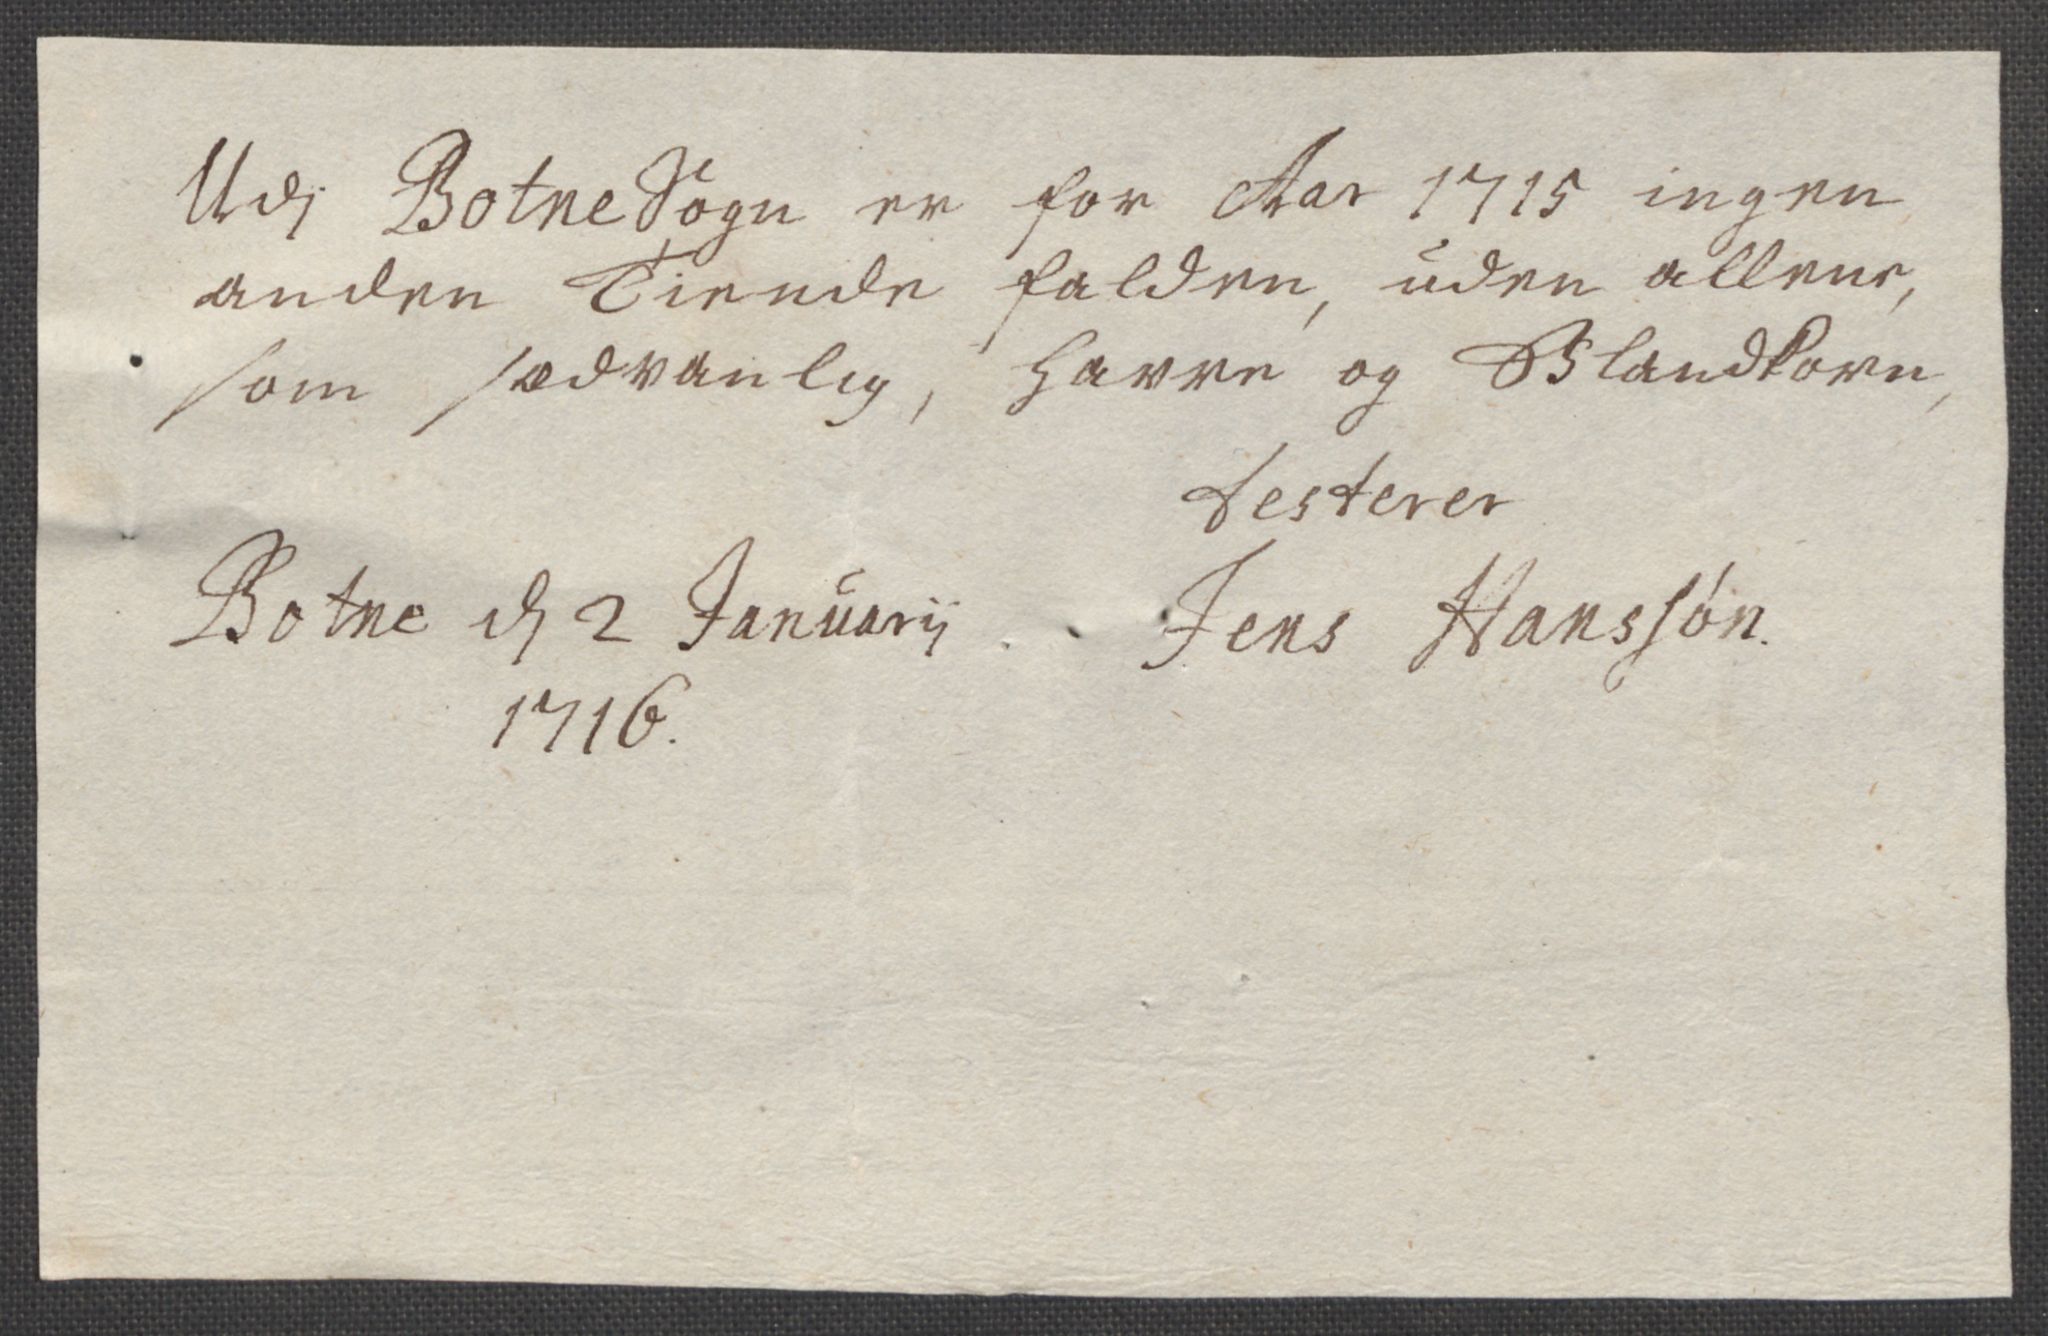 Udj Botne Sogn er for Aar 1715 ingen
anden Tiende falden, uden allene,
som sædvanlig, Havre og Blandkorn,
testerer
Botne d 2 Januarij Jens Hanssøn.
1716.